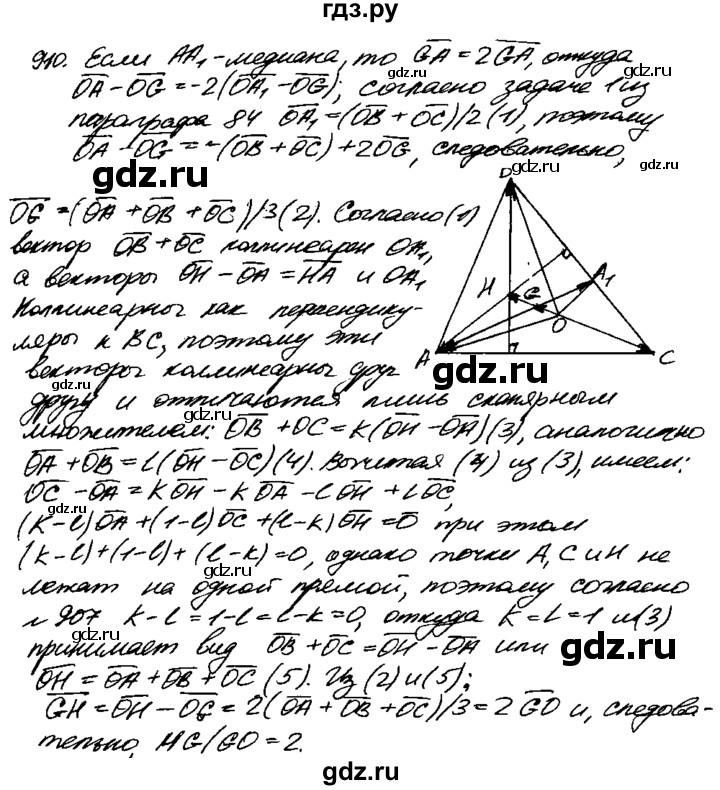 гдз.ру
910. Если AA₁-медиана, то GA = 2GA, откуда
OA - OG = -2(OA₁ - OG); согласно задаче 1 из
параграфа 84 OA₁ = (OB + OC)/2 (1), поэтому
OA - OG = -(OB + OC) + 2OG, следовательно,
OG = (OA + OB + OC)/3 (2). Согласно (1)
вектор OB + OC коллинеарен OA₁,
а векторы OH - OA = HA и OA₁
Коллинеарны как перпендику-
ляры к BC, поэтому эти
векторы коллинеарны друг
другу и отличаются лишь скалярным
множителем: OB + OC = k(OH - OA) (3), аналогично
OA + OB = l(OH - OC) (4). Вычитая (4) из (3), имеем:
OC - OA = kOH - kOA - lOH + lOC,
(k-l)OA + (1-l)OC + (l-k)OH = O при этом
(k-l) + (1-l) + (l-k) = 0, однако точки A, C и H не
лежат на одной прямой, поэтому согласно
№ 907 k-l = 1-l = l-k = 0, откуда k = l = 1 и (3)
принимает вид OB + OC = OH - OA или
OH = OA + OB + OC (5). Из (2) и (5);
GH = OH - OG = 2(OA + OB + OC)/3 = 2GO и, следова-
тельно, HG/GO = 2.
D
H
G
A₁
O
A
C
gdz.ru
gdz.ru
gdz.ru
gdz.ru
gdz.ru
gdz.ru
gdz.ru
gdz.ru
gdz.ru
gdz.ru
gdz.ru
gdz.ru
gdz.ru